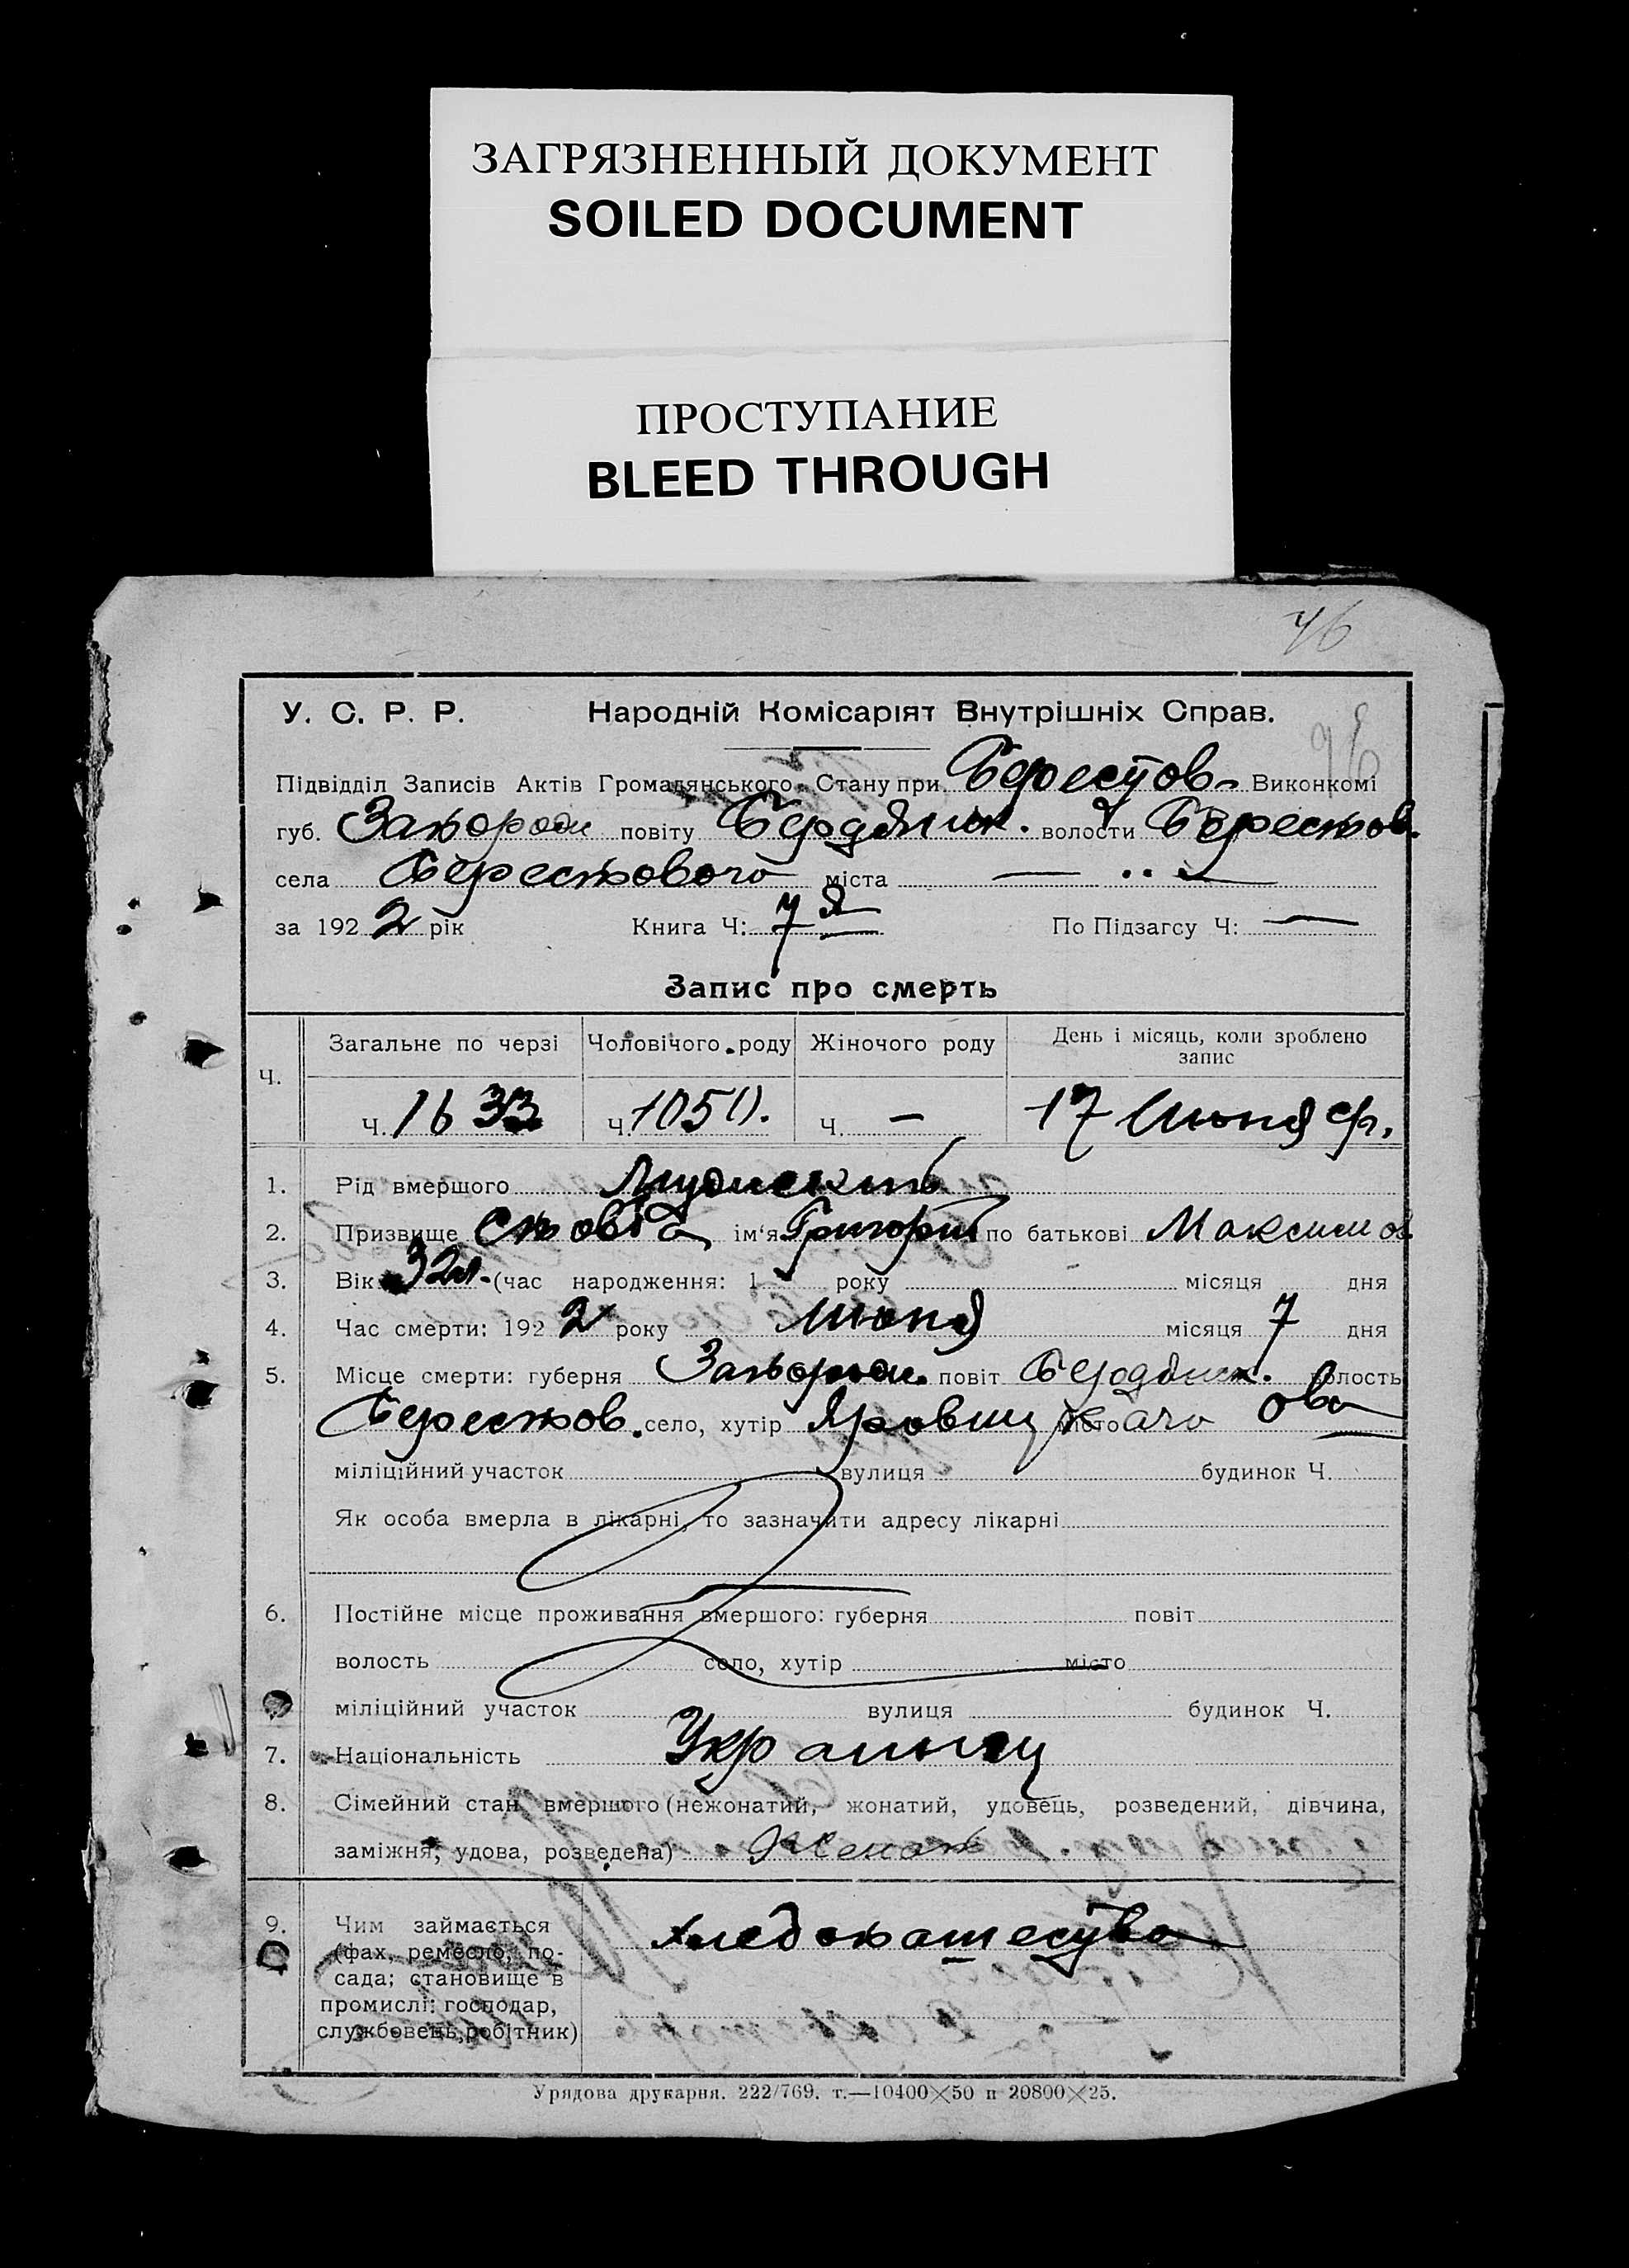 ЗАГРЯЗНЕННЫЙ ДОКУМЕНТ
SOILED DOCUMENT
ПРОСТУПАНИЕ
BLEED THROUGH
У. С. Р. Р. Народній Комісаріят Внутрішніх Справ.
Підвідділ Записів Актів Громадянського Стану при Берестов. Виконкомі
губ. повіту Бердянск. волости Берестов.
села Берестового міста —
за 1922 рік Книга Ч: 7я По Підзагсу Ч: —
Запис про смерть
Загальне по черзі Чоловічого роду Жіночого роду День і місяць, коли зроблено
запис
Ч.
Ч. 1633 Ч. Ч. — 17 Июня
1. Рід вмершого Мужскить
2. Призвище ім'я Григорій по батькові Максимов
3. Вік 32 л. (час народження: 1 року місяця дня
4. Час смерти: 1922 року Июня місяця 7 дня
5. Місце смерти: губерня повіт Бердянск. волость
Берестов. село, хутір місто
міліційний участок вулиця будинок Ч.
Як особа вмерла в лікарні, то зазначити адресу лікарні
6. Постійне місце проживання вмершого: губерня повіт
волость село, хутір місто
міліційний участок вулиця будинок Ч.
7. Національність Украинец
8. Сімейний стан вмершого (нежонатий, жонатий, удовець, розведений, дівчина,
заміжня, удова, розведена) Женат
9. Чим займається
(фах, ремесло, по-
сада; становище в
промислі: господар,
службовець, робітник)
Урядова друкарня. 222/769. т.—10400×50 п 20800×25.